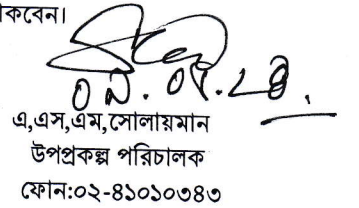 কবেন।
এ,এস,এম,সোলায়মান
উপপ্রকল্প পরিচালক
ফোন:০২-৪১০১০৩৪৩